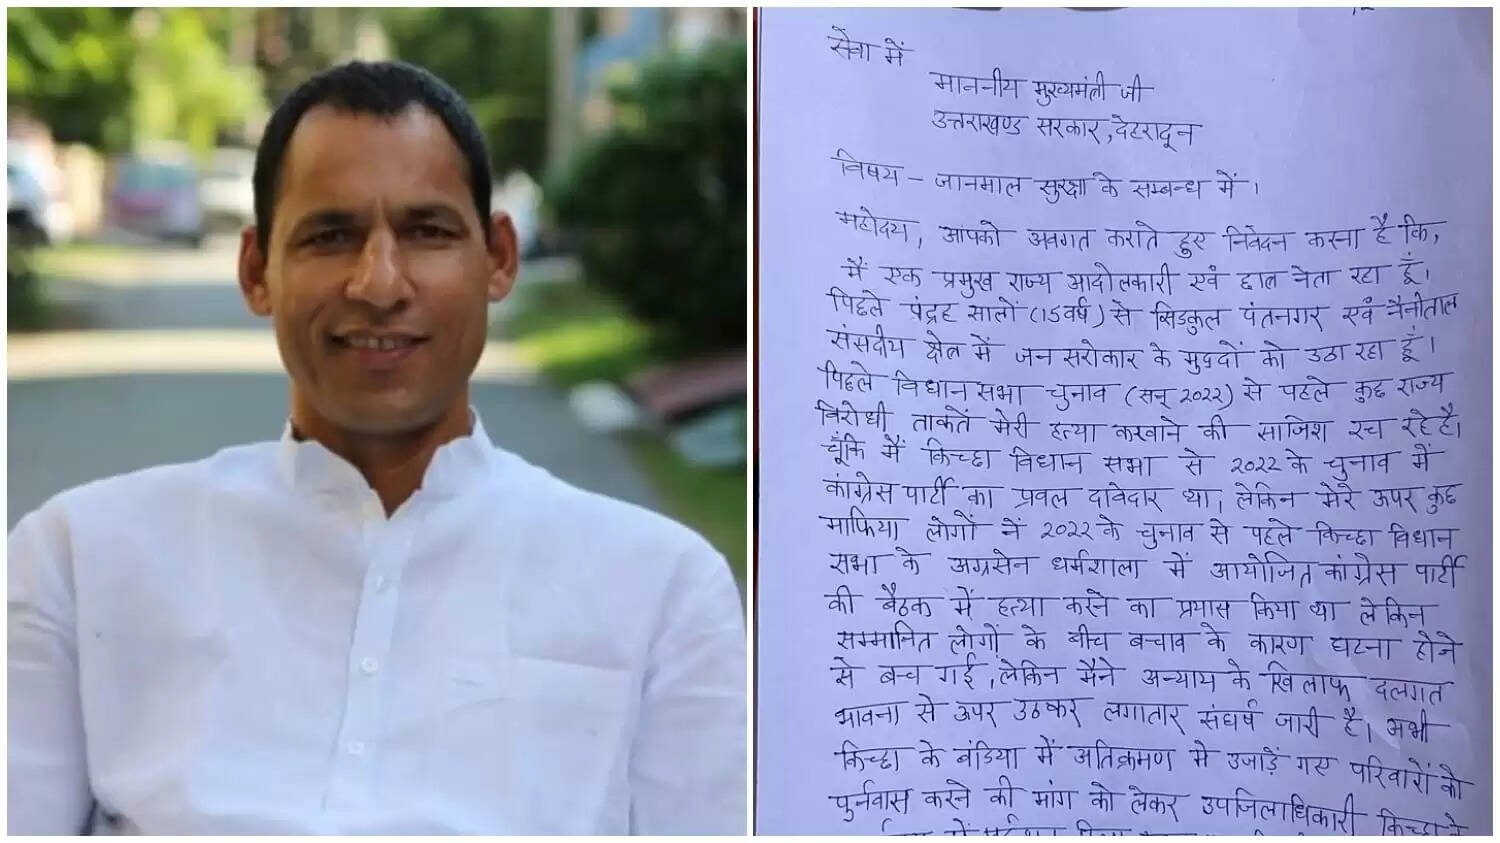 सेवा में
माननीय मुख्यमंत्री जी
उत्तराखण्ड सरकार, देहरादून
विषय – जानमाल सुरक्षा के सम्बन्ध में।
महोदय, आपको अवगत कराते हुए निवेदन करना है कि,
मैं एक प्रमुख राज्य आदोलकारी एवं छात्र नेता रहा हूँ।
पिछले पंद्रह सालों (15 वर्ष) से सिडकुल पंतनगर एवं नैनीताल
संसदीय क्षेत्र में जन सरोकार के मुद्दों को उठा रहा हूँ।
पिछले विधान सभा चुनाव (सन् २०२२) से पहले कुछ राज्य
विरोधी ताकतें मेरी हत्या करवाने की साजिश रच रहे है।
चूँकि मैं किच्छा विधान सभा से २०२२ के चुनाव में
कांग्रेस पार्टी का प्रवल दावेदार था, लेकिन मेरे ऊपर कुछ
माफिया लोगों नें २०२२ के चुनाव से पहले किच्छा विधान
सभा के अग्रसेन धर्मशाला में आयोजित कांग्रेस पार्टी
की बैठक में हत्या करने का प्रयास किया था लेकिन
सम्मानित लोगों के बीच बचाव के कारण घटना होने
से बच गई, लेकिन मैने अन्याय के खिलाफ दलगत
भावना से ऊपर उठकर लगातार संघर्ष जारी है। अभी
किच्छा के बंडिया में अतिक्रमण में उजाड़ें गए परिवारों को
पुर्नवास करने की मांग को लेकर उपजिलाधिकारी किच्छा के